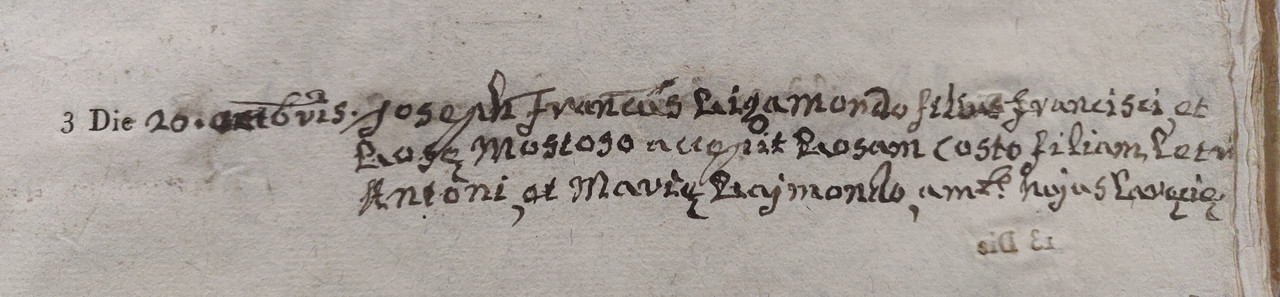 3 Die 20. octobris. Joseph Francus Rigamondo filius Francisci, et
Rosę Mostoso accepit Rosam Costo filiam Petri
Antoni, et Marię Rajmondo, amb. hujus Parocię.
13 Die